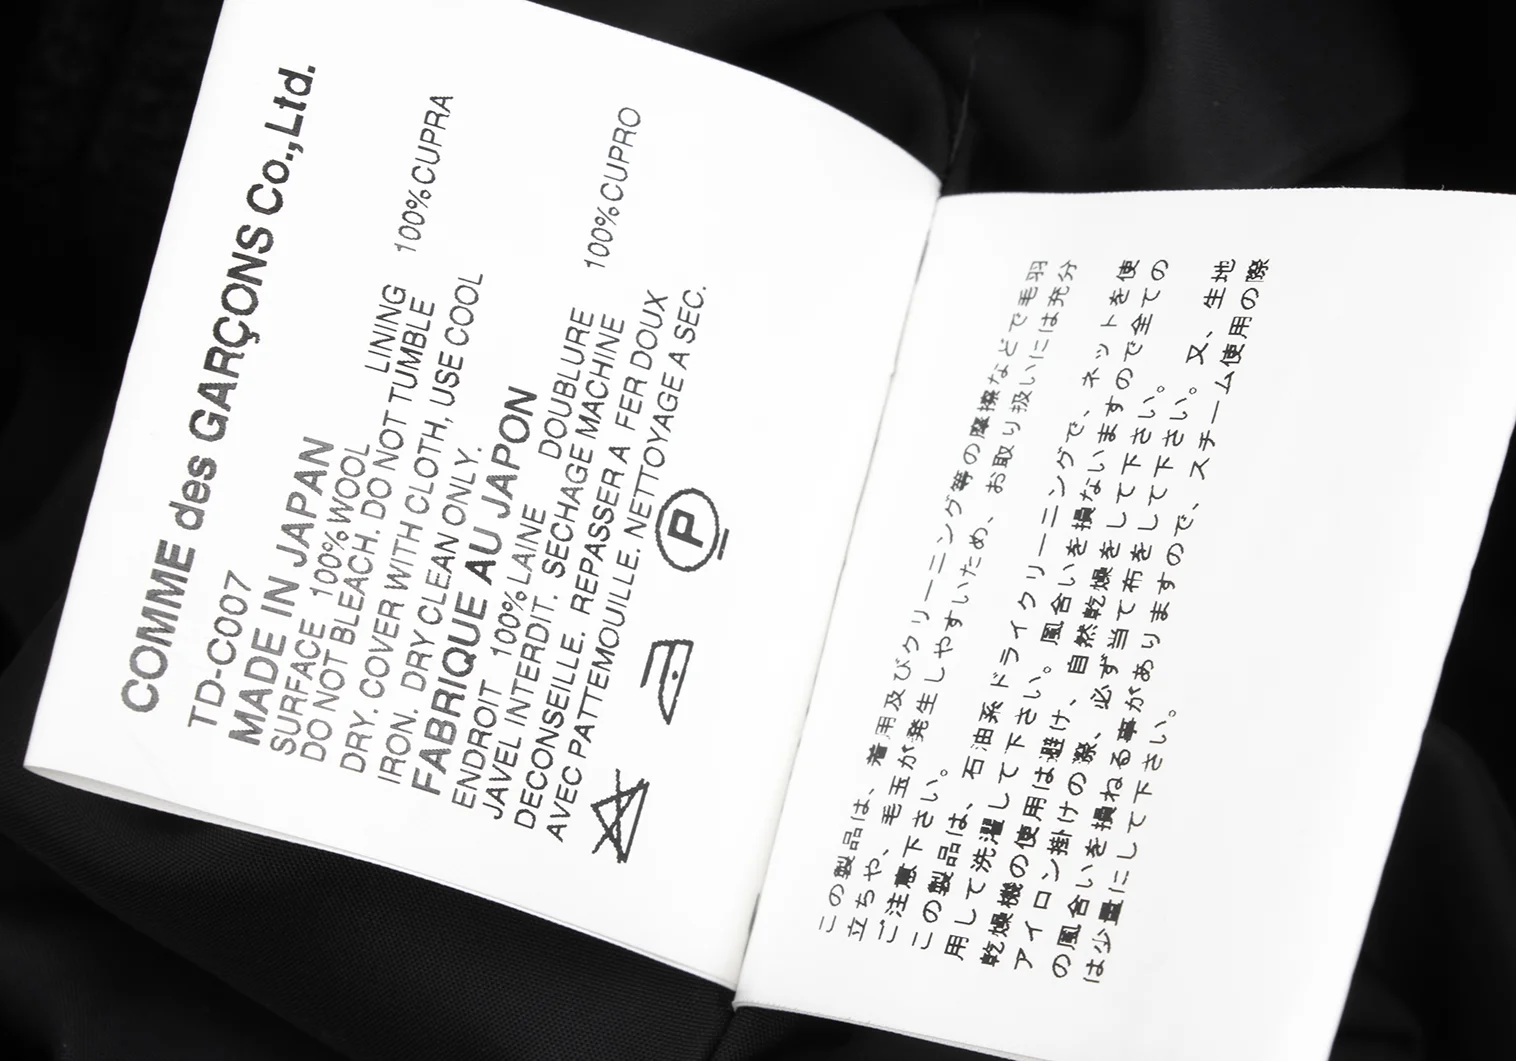 COMME des GARÇONS Co.,Ltd.
TD-C007
MADE IN JAPAN
SURFACE 100%WOOL LINING 100%CUPRA
DO NOT BLEACH. DO NOT TUMBLE
DRY. COVER WITH CLOTH, USE COOL
IRON. DRY CLEAN ONLY.
FABRIQUE AU JAPON
ENDROIT 100%LAINE DOUBLURE 100%CUPRO
JAVEL INTERDIT. SECHAGE MACHINE
DECONSEILLE. REPASSER A FER DOUX
AVEC PATTEMOUILLE. NETTOYAGE A SEC.
P
この製品は、着用及びクリーニング等の摩擦などで毛羽
立ちや、毛玉が発生しやすいため、お取り扱いには充分
ご注意下さい。
この製品は、石油系ドライクリーニングで、ネットを使
用して洗濯して下さい。風合いを損ないますので全ての
乾燥機の使用は避け、自然乾燥をして下さい。
アイロン掛けの際、必ず当て布をして下さい。又、生地
の風合いを損ねる事がありますので、スチーム使用の際
は少量にして下さい。